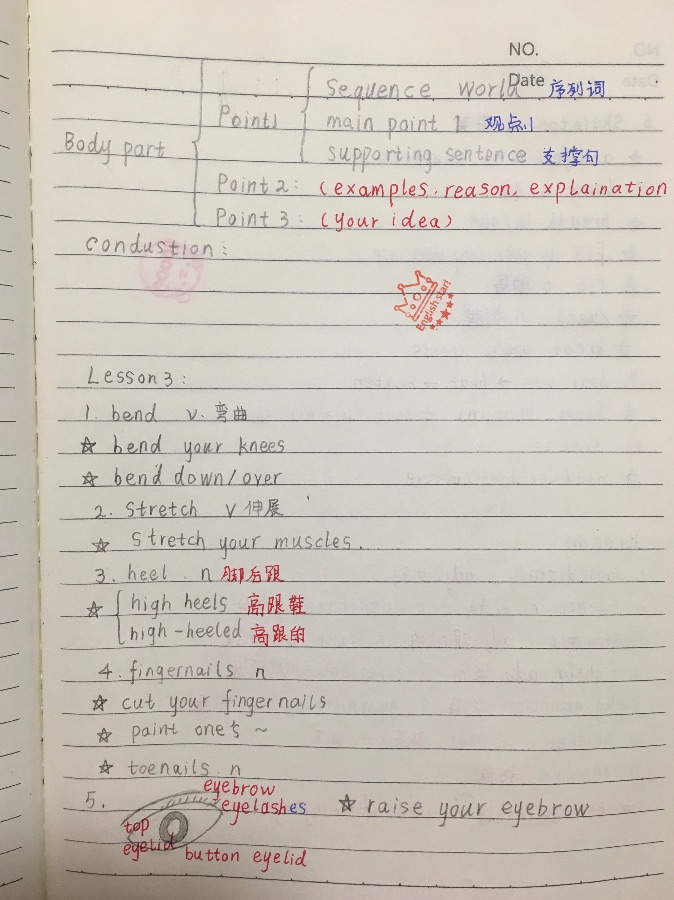 NO.
Date
Sequence world 序列词
Point1 main point 1 观点1
Body part
supporting sentence 支撑句
Point 2: (examples. reason. explaination
Point 3: (your idea)
Condustion:
English star!
Lesson 3:
1. bend v. 弯曲
☆ bend your knees
☆ bend down/over
2. Stretch v 伸展
☆ Stretch your muscles.
3. heel . n 脚后跟
☆ high heels 高跟鞋
high-heeled 高跟的
4. fingernails n
☆ cut your fingernails
☆ paint one's ~
☆ toenails n
eyebrow
5. eyelashes ☆ raise your eyebrow
top
eyelid button eyelid